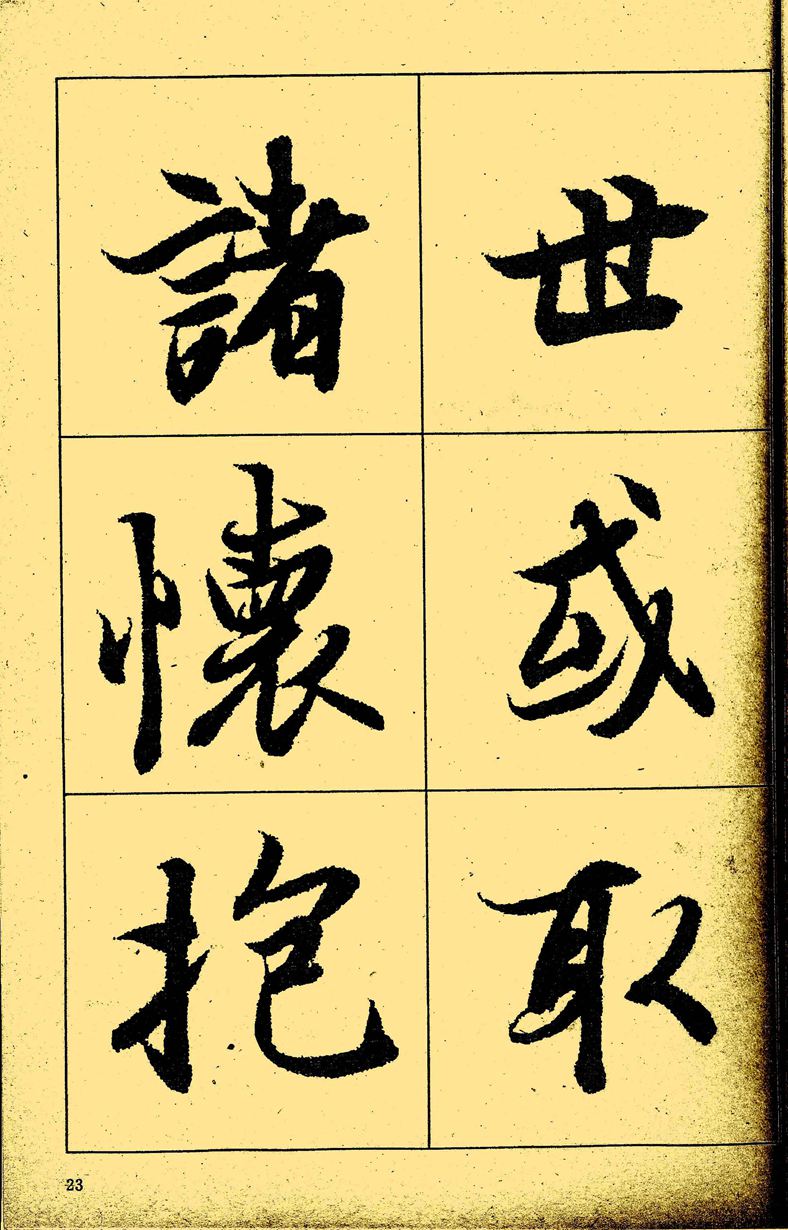 世或取
諸懷抱
23